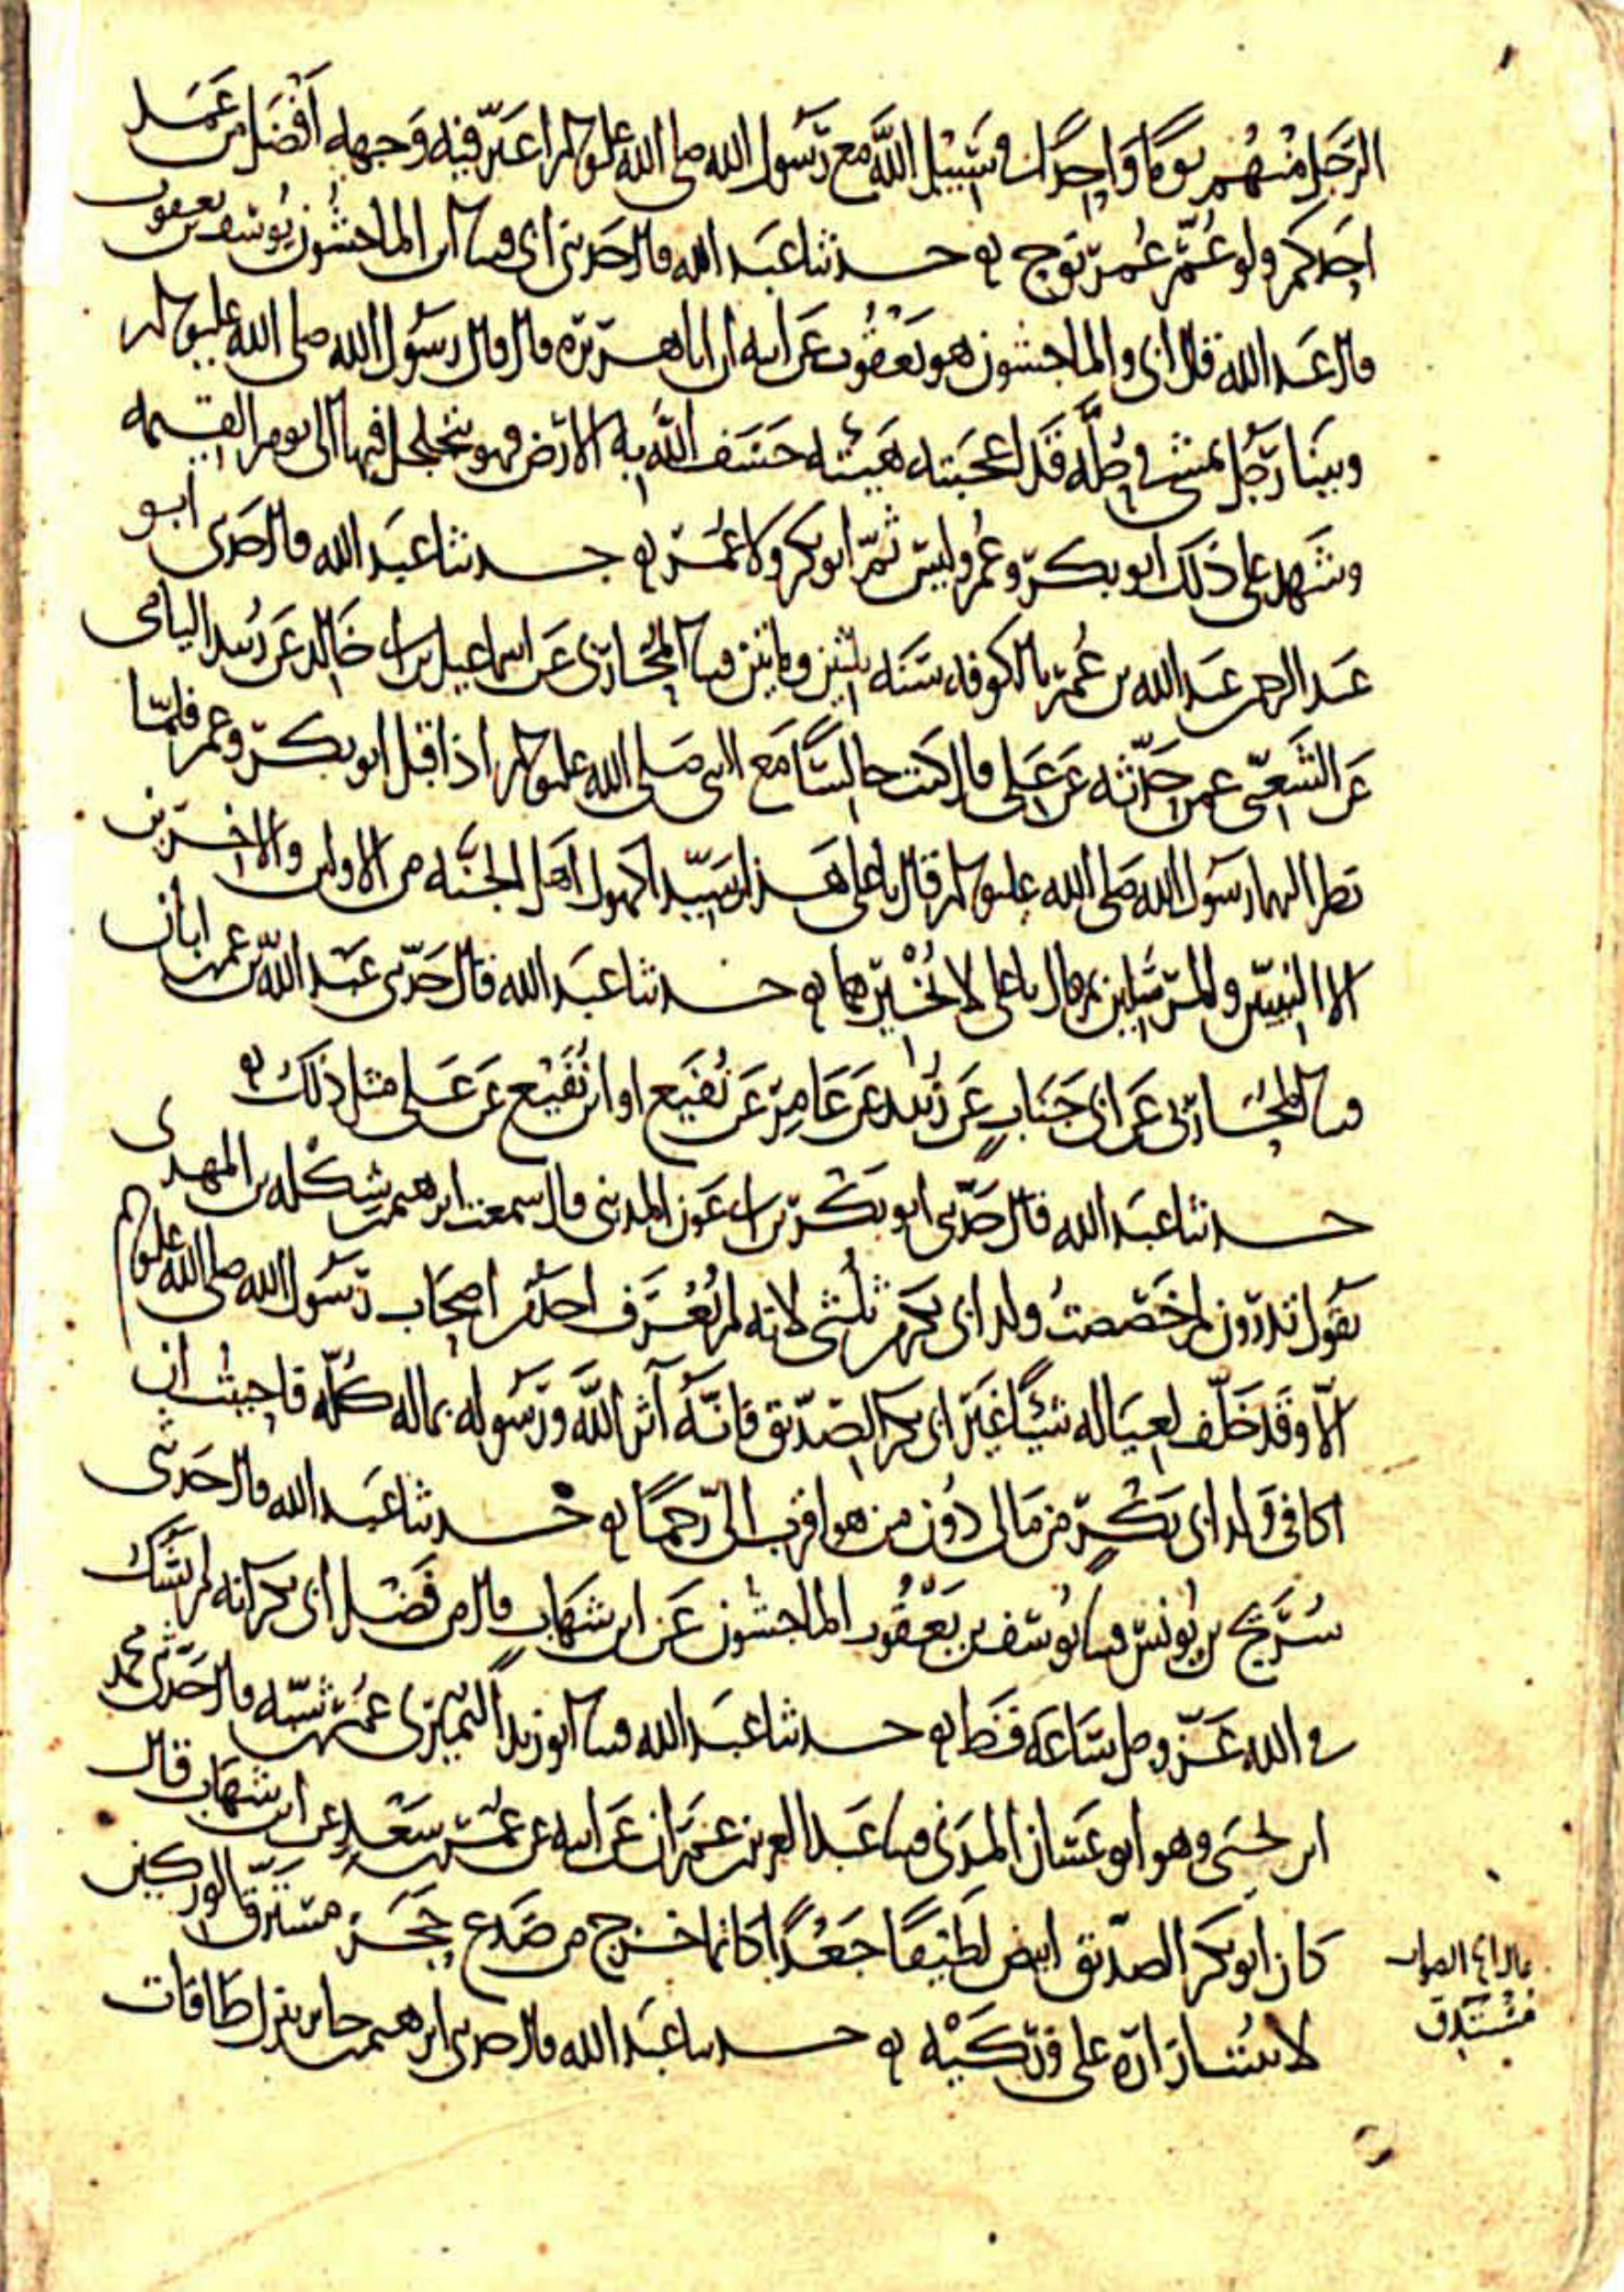 الرجل منهم يوما واحدا في سبيل الله مع رسول الله صلى الله عليه وسلم اغبر فيه وجهه أفضل من عمل
احدكم ولو عمر عمر نوح حدثنا عبد الله قال حدثني ابي قثنا ابن الماجشون يوسف بن يعقوب
قال عبد الله قال ابي والماجشون هو يعقوب عن ابيه ان ابا هريرة قال قال رسول الله صلى الله عليه وسلم
وبينا رجل يمشي في حلة قد اعجبته هيئته خسف الله به الارض فهو يتجلجل فيها الى يوم القيمه
وشهد على ذلك ابو بكر وعمر وليس ثم ابو بكر ولا عمر حدثنا عبد الله قال حدثني ابو
عبد الرحمن عبد الله بن عمر بالكوفه سنه ثلثين ومايتين قثنا المحاربي عن اسماعيل بن ابي خالد عن زبيد اليامي
عن الشعبي عمن حدثه عن علي قال كنت جالسا مع النبي صلى الله عليه وسلم اذ اقبل ابو بكر وعمر فلما
نظر اليهما رسول الله صلى الله عليه وسلم قال يا علي هذان سيدا كهول اهل الجنه من الاولين والاخرين
الا النبيين والمرسلين ثم قال يا علي لا تخبرهما حدثنا عبد الله قال حدثني عبد الله بن عمر بن ابان
قثنا المحاربي عن ابي جناب عن زبيد عن عامر عن نفيع او ابن نفيع عن علي مثل ذلك
حدثنا عبد الله قال حدثني ابو بكر بن ابي عون المدني قال سمعت ابرهيم بن شكله بن المهدي
يقول تدرون لم خصصت ولد ابي بكر بثلثي لانه لم نعرف احد من اصحاب رسول الله صلى الله عليه وسلم
الا وقد خلف لعياله شيئا غير ابي بكر الصديق فانه آثر الله ورسوله بماله كله فاحببت ان
اكافي ولد ابي بكر من مالي دون من هو اقرب الي رحما حدثنا عبد الله قال حدثني
سريج بن يونس قثنا يوسف بن يعقوب الماجشون عن ابن شهاب قال من فضل ابي بكر انه لم يشك
في الله عز وجل ساعة قط حدثنا عبد الله قثنا ابو زيد النميري عمر بن شبه قال حدثني محمد
ابن يحيى وهو ابو غسان المدني قثنا عبد العزيز بن عمران عن ابيه عن عمر بن سعيد عن ابن شهاب قال
كان ابو بكر الصديق ابيض لطيفا جعدا كانما خرج من صدع حجر مسترق الوركين
لا يثبت ازاره على وركيه حدثنا عبد الله قال حدثني ابرهيم بن جابر بنزل طاقات
الصواب
مستدق